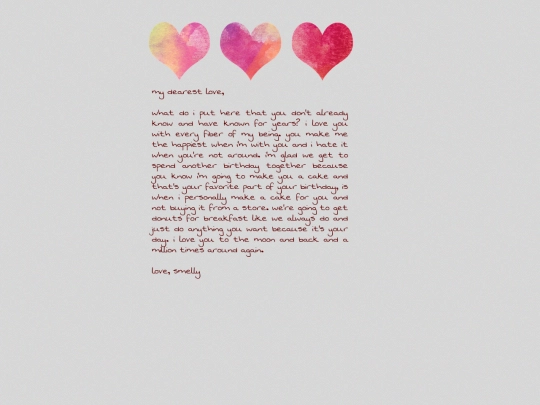 my dearest love,
what do i put here that you don't already
know and have known for years? i love you
with every fiber of my being. you make me
the happiest when i'm with you and i hate it
when you're not around. i'm glad we get to
spend another birthday together because
you know i'm going to make you a cake and
that's your favorite part of your birthday, is
when i personally make a cake for you and
not buying it from a store. we're going to get
donuts for breakfast like we always do and
just do anything you want because it's your
day. i love you to the moon and back and a
million times around again.
love, smelly